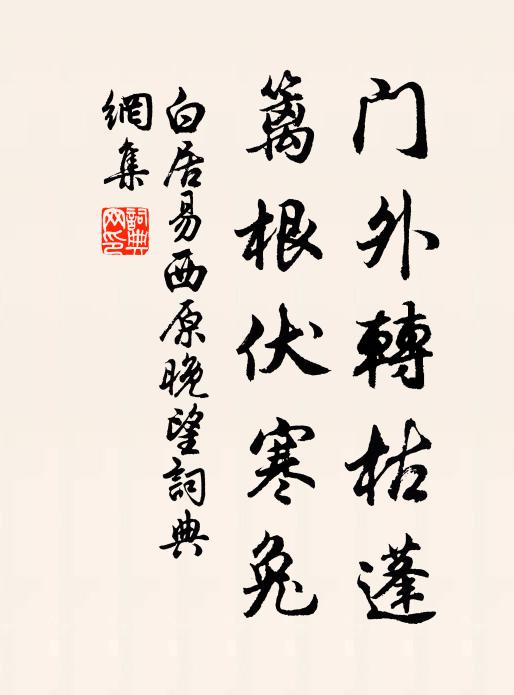 门外轉枯蓬
篱根伏寒兔
白居易西原晚望詞典
網集
詞典網印